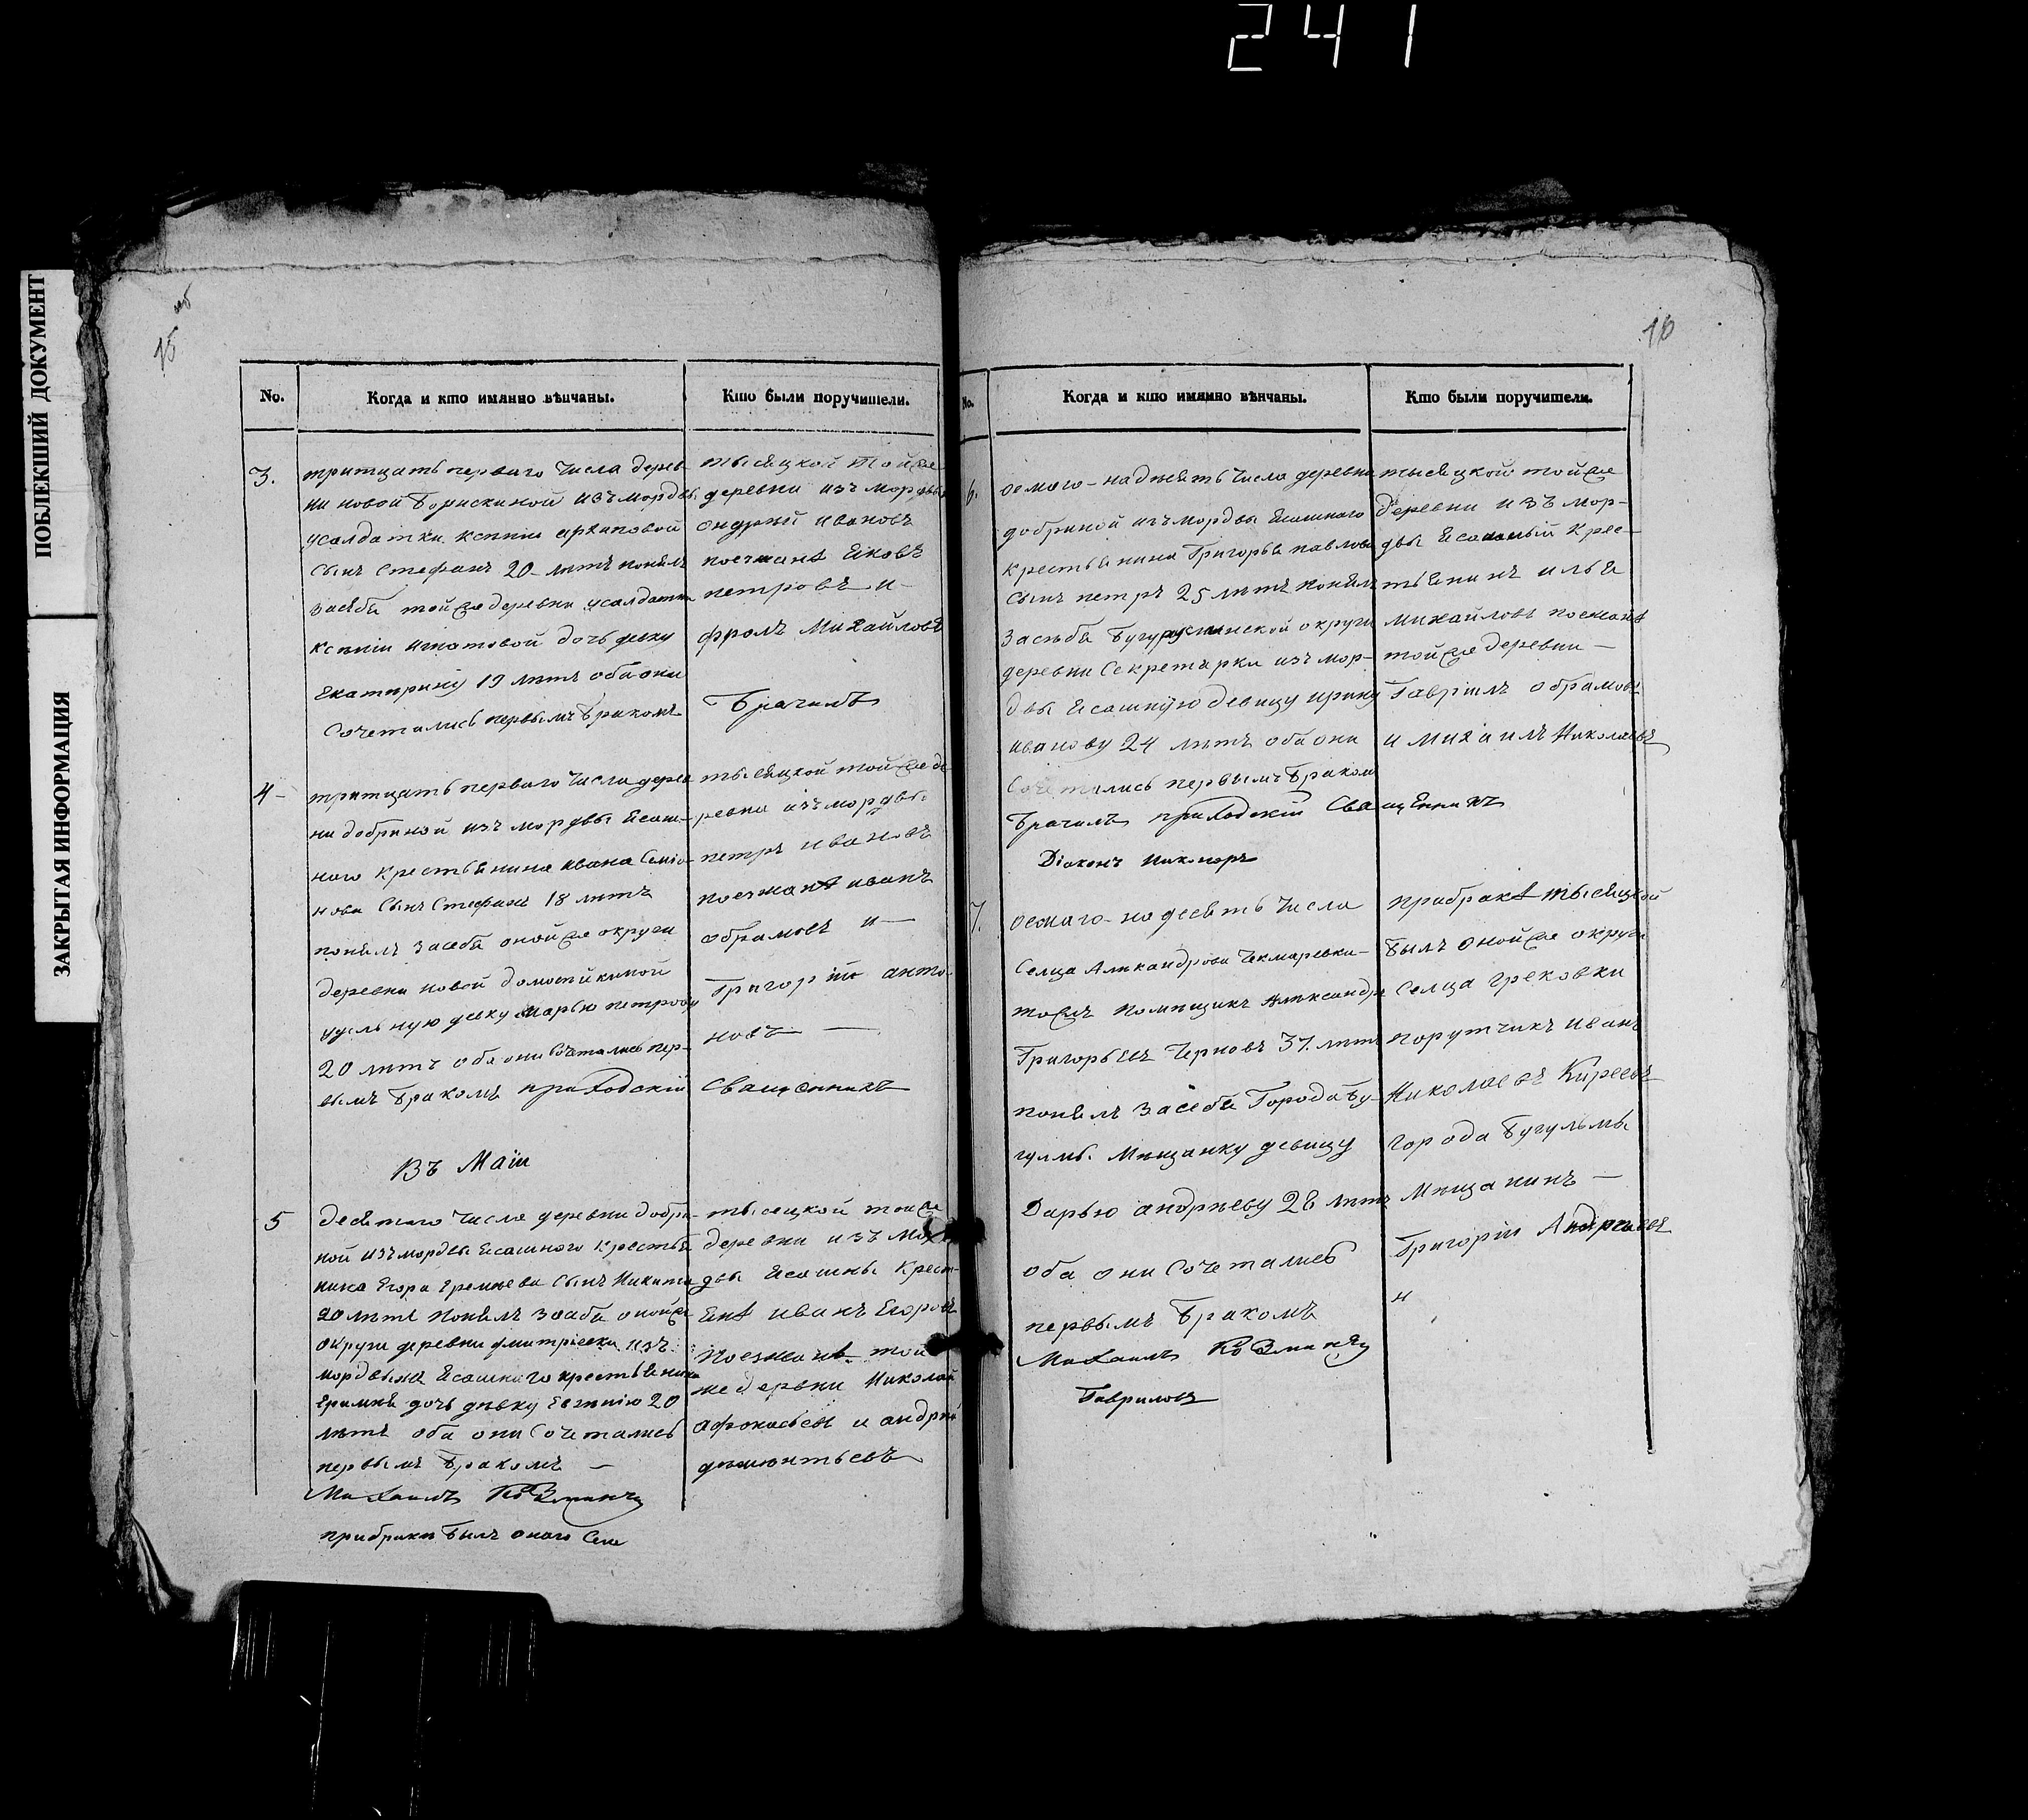 241
ПОБЛЕКШИЙ ДОКУМЕНТ
ЗАКРЫТАЯ ИНФОРМАЦИЯ
15 об
No.
Когда и кто имянно вѣнчаны.
Кто были поручители.
3.
тритцать перваго числа дерев-
ни новой Борискиной изъ мордвы
усалдатки ксении архиповой
сынъ Стефанъ 20 лѣтъ понялъ
засебя тойже деревни усалдатки
ксении игнатовой дочь девку
Екатерину 19 лѣтъ оба они
Сочетались первымъ бракомъ
тысяцкой тойже
деревни изъ мордвы
ондрей ивановъ
поезжанѣ Яковъ
петровъ и
фролъ Михайловъ
Брачилъ
4
тритцать перваго числа дерев
ни добриной изъ мордвы Ясаш-
ного крестьянина ивана Семио-
нова сынъ Стефанъ 18 лѣтъ
понялъ засебя онойже округи
деревни новой домосейкиной
удельную девку марью петрову
20 лѣтъ оба они Сочетались пер-
вымъ бракомъ приходский
тысяцкой тойже де
ревни изъ мордвы
петръ ивановъ
поезжанѣ иванъ
обрамовъ и
Григорий анто-
новъ
Священникъ
Въ Маии
5
Десятаго числа деревни добри-
ной изъ мордвы Ясашного крестья
нина Егора Еремеева сынъ Никита
20 лѣтъ понялъ засебя онойже
округи деревни дмитриевки изъ
мордвы Ясашнаго крестьянина
дочь дѣвку 20
лѣтъ оба они Сочетались
первымъ бракомъ
Михаилъ Козминъ
прибраки былъ оного Села
тысецкой тойже
деревни изъ мор
двы Ясашны Крест-
Янѣ иванъ Егоровъ
Поезжанѣ той
же деревни Николай
афонасьевъ и андрей
дементьевъ
16
No.
Когда и кто имянно вѣнчаны.
Кто были поручители.
6.
осмого-надцеть числа деревни
добриной изъ мордвы Ясашного
крестьянина Григорья павлова
сынъ петръ 25 лѣтъ понялъ
засебя Бугурусланской округи
деревни Секретарки изъ мор-
двы Ясашную девицу ирину
иванову 24 лѣтъ оба они
Сочетались первымъ бракомъ
Брачилъ приходский Священникъ
Диаконъ Никаноръ
тысяцкой тойже
деревни изъ мор-
двы Ясашный Крес-
тьянинъ илья
михайловъ поезжанѣ
тойже деревни
Гаврилъ обрамовъ
и михаилъ Николаевъ
7.
осмаго-надесять числа
Селца Александрова Чекмаревка-
тожъ помещикъ Александръ
Григорьевъ Черновъ 37. лѣтъ
понялъ засебя Города Бу-
гулмы. Мещанку девицу
Дарью андрееву 28 лѣтъ
оба они Сочетались
первымъ бракомъ
Михаилъ Козминъ
Гавриловъ
прибракѣ тысяцкой
былъ онойже округи
Селца грековки
порутчикъ иванъ
Николаевъ Киреевъ
города Бугульмы
Мещанинъ
Григорий Андреевъ
и